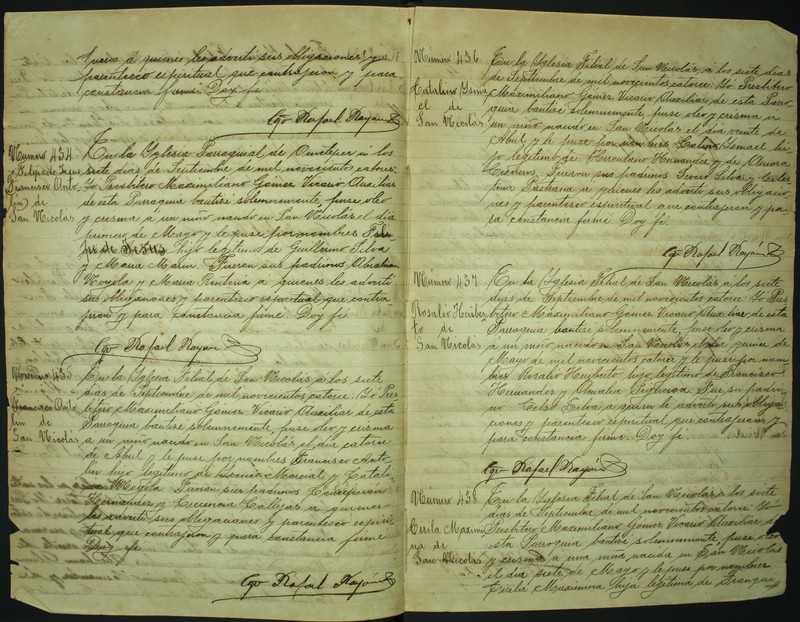 quienes les advertí sus obligaciones y
parentesco espiritual que contrajeron y para
constancia firmé. Doy fé.
Cgo Rafael Rayón
Numero 434
Felipe de Jesus
Francisco Anto
lin de
San Nicolás
En la Yglesia Parroquial de Ometepec á los
siete dias de Septiembre de mil novecientos catorce:
Yo Presbitero Maximiliano Gómez Vicario Auxiliar
de esta Parroquia bautise solemnemente, puse oleo
y crisma á un niño nacido en San Nicolás el dia
primero de Mayo y le puse por nombres Feli-
pe de Jesus hijo legítimo de Guillermo Silva
y Maria Marin. Fueron sus padrinos
Noyola y Maria Renteria a quienes les advertí
sus obligaciones y parentesco espiritual que contra
jeron y para constancia firmé. Doy fé
Cgo Rafael Rayón
Numero 435
Francisco Anto
lin de
San Nicolás
En la Yglesia Filial de San Nicolás á los siete
dias de Septiembre de mil novecientos catorce: Yo Pres
bitero Maximiliano Gómez Vicario Auxiliar de esta
Parroquia bautise solemnemente, puse oleo y crisma
a un niño nacido en San Nicolás el dia catorce
de Abril y le puse por nombres Francisco Anto
lin hijo legítimo de Marcial y Catali
Noyola. Fueron sus padrinos
Hernandez y Crecencia Callejas a quienes
les advertí sus obligaciones y parentesco espiri
tual que contrajeron y para constancia firmé.
Doy fé
Cgo Rafael Rayón
Numero 436
Catalino Ysma
el de
San Nicolás
En la Yglesia Filial de San Nicolás, á los siete dias
de Septiembre de mil novecientos catorce: Yó Presbitero
Maximiliano Gómez Vicario Auxiliar de esta Parro
quia bautise solemnemente, puse oleo y crisma a
un niño nacido en San Nicolás el dia veinte de
Abril y le puse por nombres Catalino Ismael hi
jo legítimo de Herculano Hernandez y de Aurora
Fueron sus padrinos Silva y
Pastrana a quienes les advertí sus obligacio
nes y parentesco espiritual que contrajeron y pa
ra constancia firmé. Doy fé.
Cgo Rafael Rayón
Numero 437
Rosalio Heriber
to de
San Nicolás
En la Yglesia Filial de San Nicolás a los siete
dias de Septiembre de mil novecientos catorce: Yo Pres
bitero Maximiliano Gómez Vicario Auxiliar de esta
Parroquia bautise solemnemente, puse oleo y crisma
a un niño nacido en San Nicolás el dia quince de
Mayo de mil novecientos catorce y le puse por nom
bres Rosalio Heriberto hijo legítimo de Francisco
Hernandez y Amalia Figueroa. Fue su padri
no Celso Silva a quien le advertí sus obliga
ciones y parentesco espiritual que contrajeron y
para constancia firmé. Doy fé.
Cgo Rafael Rayón
Numero 438
Cirila Maxim
na de
San Nicolás
En la Yglesia Filial de San Nicolás a los siete
dias de Septiembre de mil novecientos catorce. Yo
Presbitero Maximiliano Gómez Vicario Auxiliar de
esta Parroquia bautise solemnemente, puse oleo
y crisma a una niña nacida en San Nicolas
el dia siete de Mayo y le puse por nombres
Cirila Maximina hija legítima de